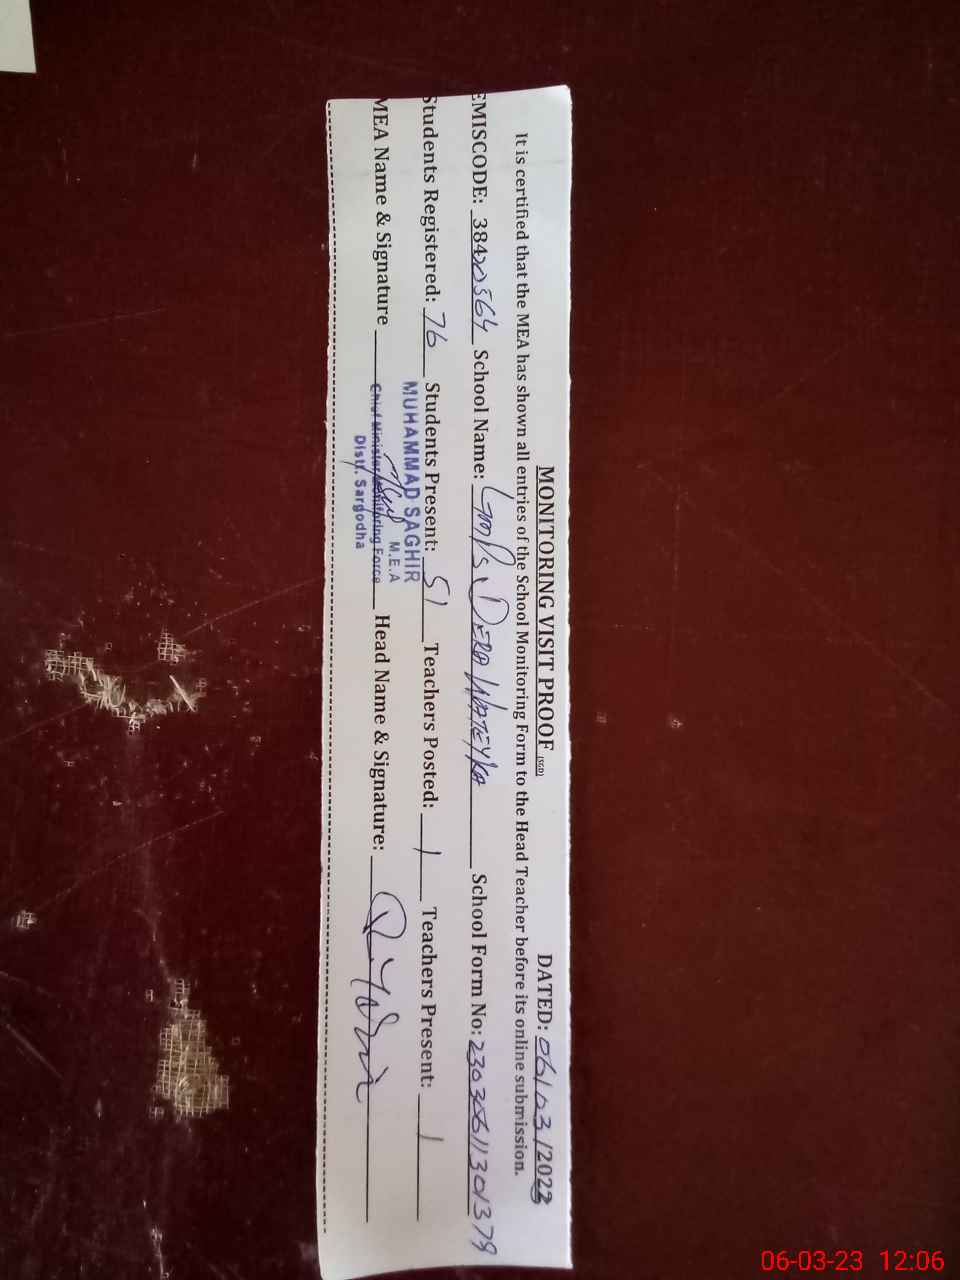 MONITORING VISIT PROOF (SGD) DATED: 06/03/2023
It is certified that the MEA has shown all entries of the School Monitoring Form to the Head Teacher before its online submission.
EMISCODE: 38420564 School Name: GMPS, DERA WATEYKA School Form No: 23030611301378
Students Registered: 76 Students Present: 51 Teachers Posted: 1 Teachers Present: 1
MUHAMMAD SAGHIR
M.E.A
MEA Name & Signature Head Name & Signature:
Chief Minister Monitoring Force
Distt. Sargodha
06-03-23 12:06